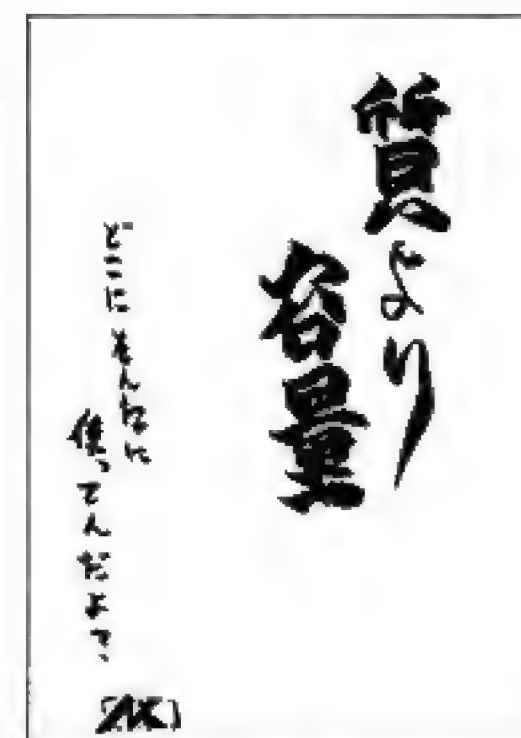 質より
容量
どこにそんなに
使ってんだよ？